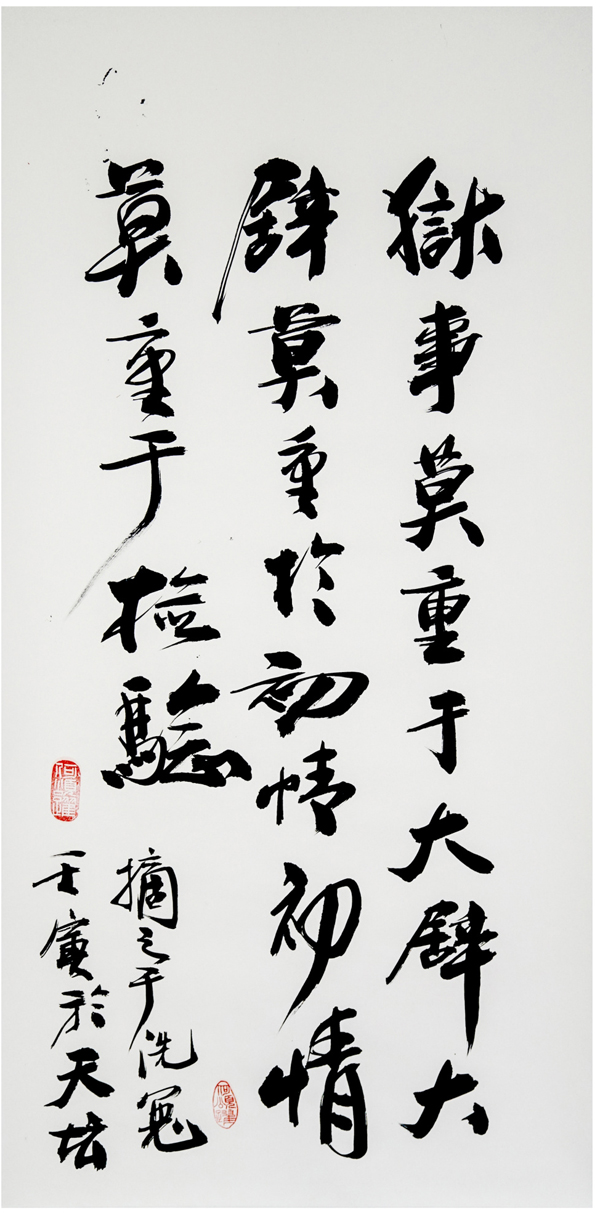 獄事莫重于大辟大
辟莫重於初情初情
莫重于检驗
摘之于洗冤
壬寅於天坛